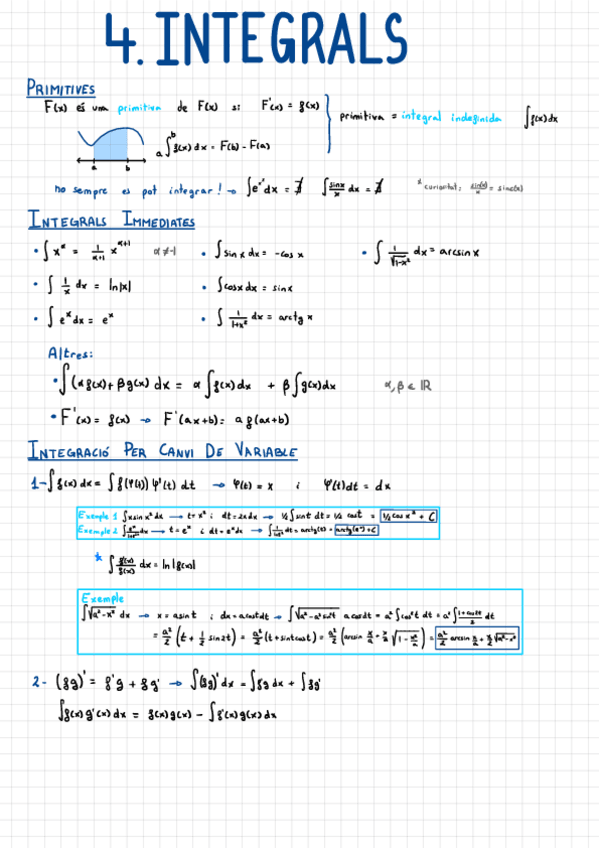 4. INTEGRALS
PRIMITIVES
F(x) és una primitiva de F(x) si F'(x) = f(x)
primitiva = integral indefinida ∫f(x)dx
a∫b f(x) dx = F(b) - F(a)
a b
no sempre es pot integrar! → ∫e^x² dx = ∄ ∫sinx/x dx = ∄ * curiositat: sin(x)/x = sinc(x)
INTEGRALS IMMEDIATES
• ∫x^α = 1/(α+1) x^(α+1) α ≠ -1 • ∫sin x dx = -cos x • ∫1/√(1-x²) dx = arcsin x
• ∫1/x dx = ln|x| • ∫cosx dx = sinx
• ∫e^x dx = e^x • ∫1/(1+x²) dx = arctg x
Altres:
• ∫(αf(x) + βg(x)) dx = α∫f(x)dx + β∫g(x)dx α, β ∈ ℝ
• F'(x) = f(x) → F'(ax+b) = a f(ax+b)
INTEGRACIÓ PER CANVI DE VARIABLE
1- ∫f(x) dx = ∫f(φ(t)) φ'(t) dt → φ(t) = x i φ'(t)dt = dx
Exemple 1 ∫x sin x² dx → t = x² i dt = 2x dx → ½∫sint dt = ½ cost = ½ cos x² + C
Exemple 2 ∫e^x/(1+e^2x) dx → t = e^x i dt = e^x dx → ∫1/(1+t²) dt = arctg(t) = arctg(e^x) + C
* ∫f'(x)/f(x) dx = ln|f(x)|
Exemple
∫√(a²-x²) dx → x = a sint i dx = a cost dt → ∫√(a²-a²sin²t) a cost dt = a²∫cos²t dt = a²∫(1+cos2t)/2 dt
= a²/2 (t + ½ sin2t) = a²/2 (t + sint cost) = a²/2 (arcsin x/a + x/a √(1 - x²/a)) = a²/2 arcsin x/a + x/2 √(a²-x²)
2- (fg)' = f'g + fg' → ∫(fg)' dx = ∫fg dx + ∫fg'
∫f(x) g'(x) dx = f(x) g(x) - ∫f'(x) g(x) dx